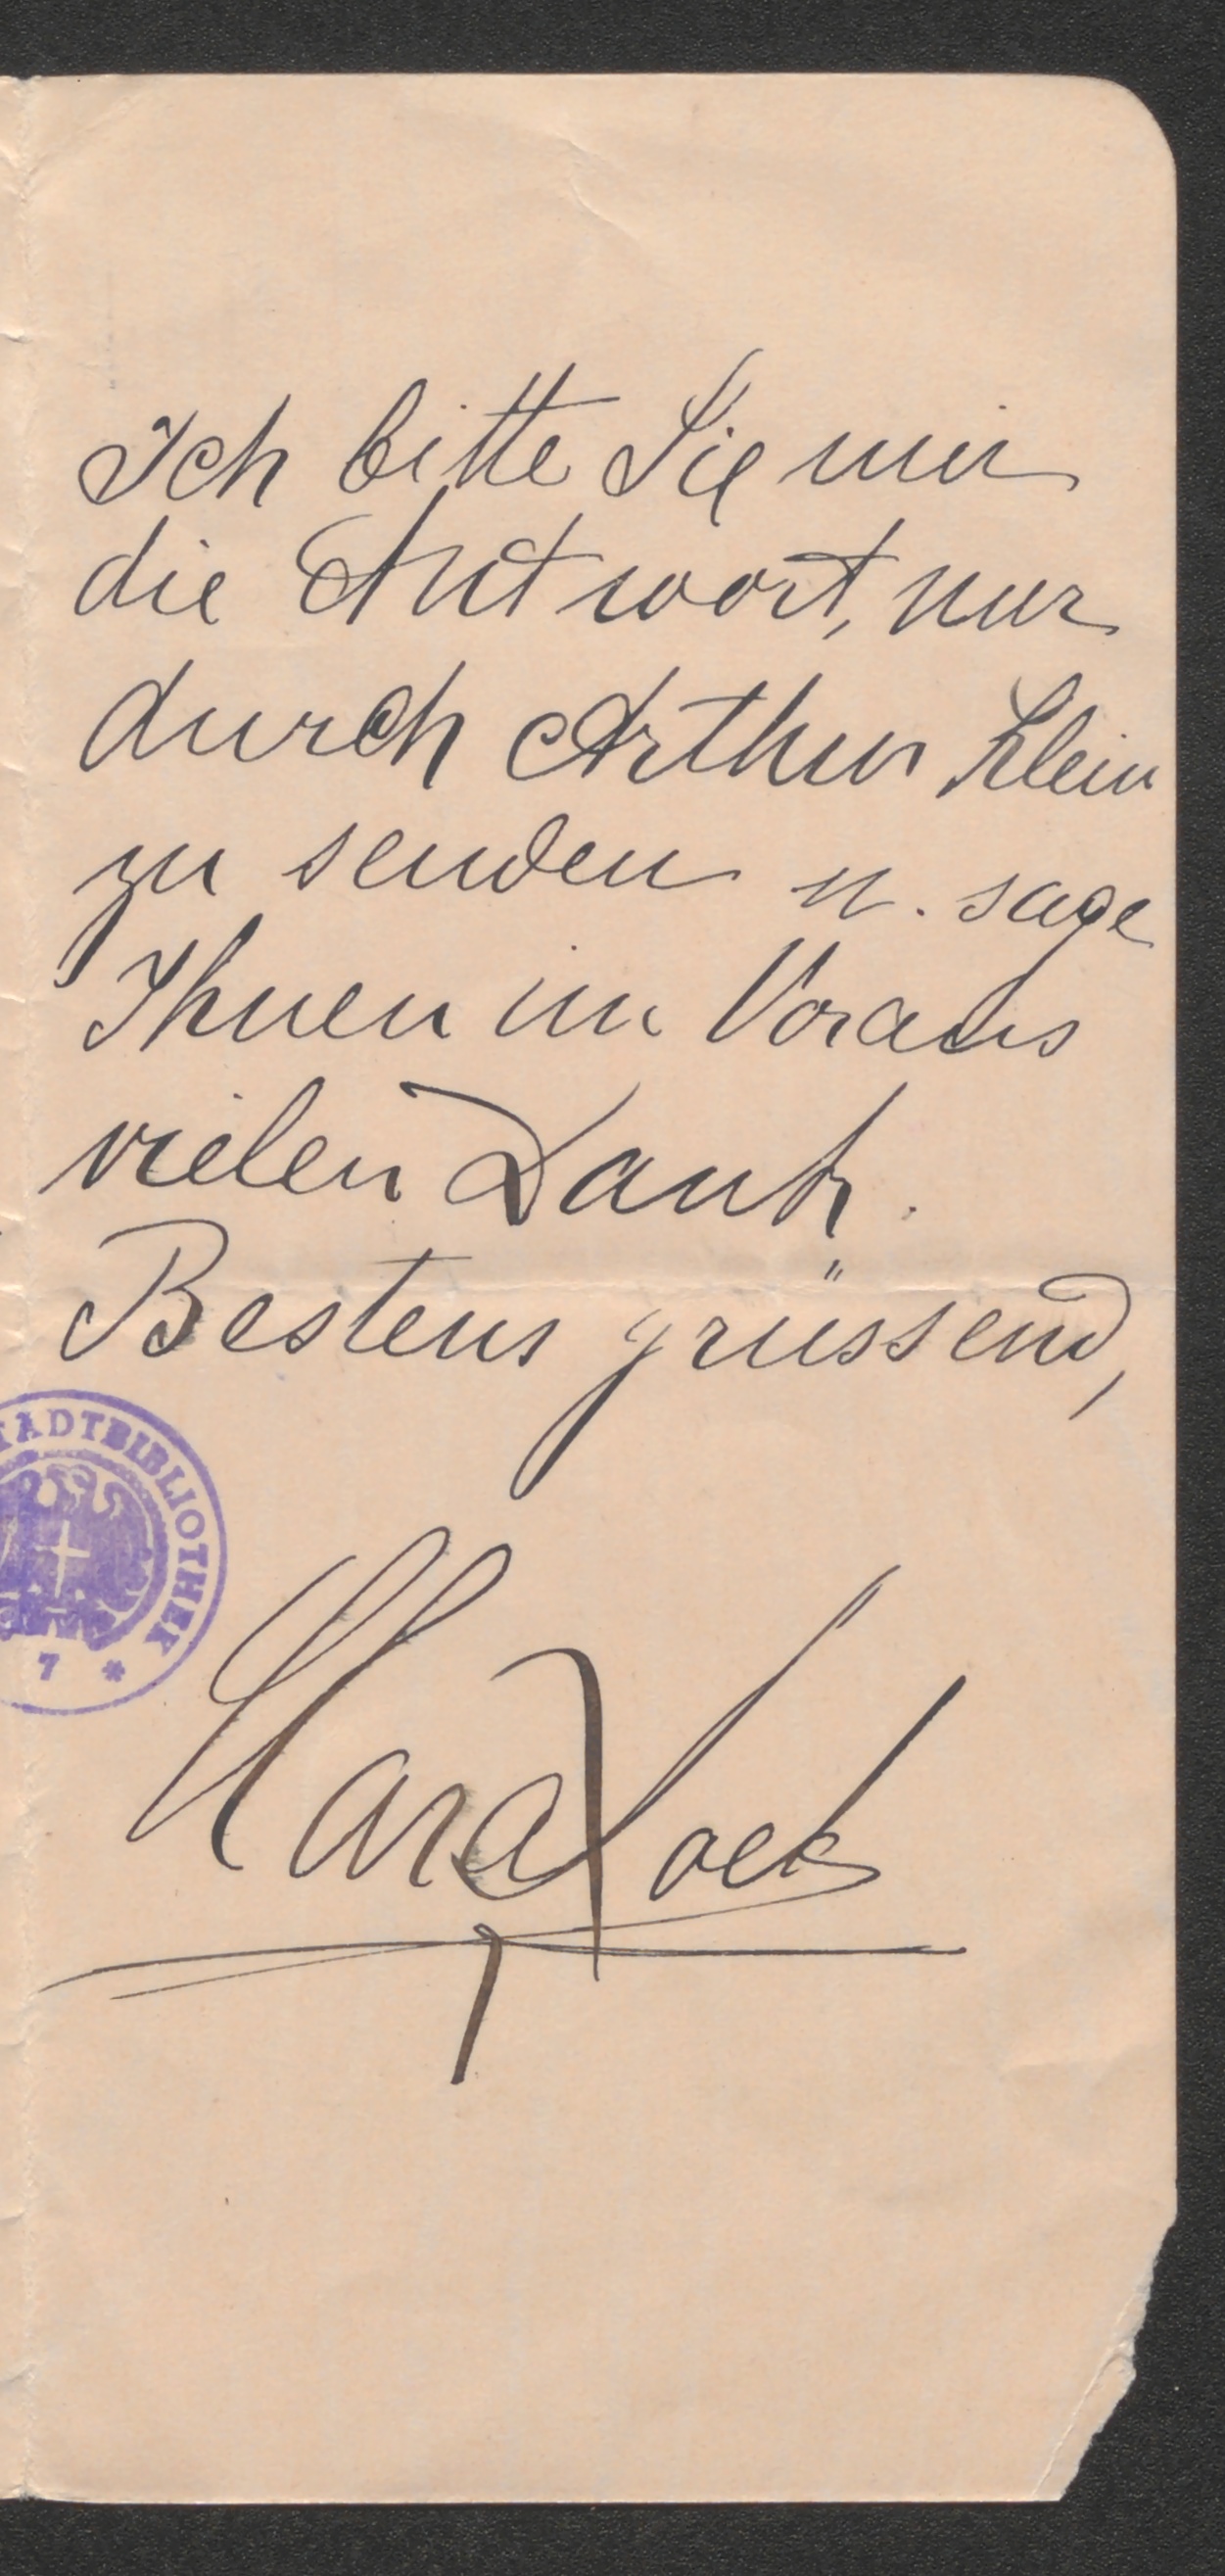 Ich bitte Sie mir
die Antwort, nur
durch Arthur Klein
zu senden u. sage
Ihnen im Voraus
vielen Dank.
Bestens grüssend,
TADTBIBLIOTHEK
7 *
Clara